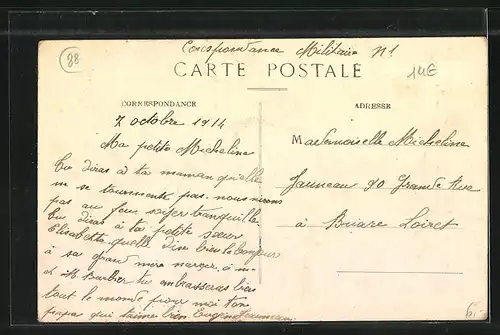 88
Correspondance Militaire N 1
CARTE POSTALE
14G
CORRESPONDANCE
ADRESSE
7 octobre 1914
Ma petite Micheline
tu diras à ta maman qu'elle
ne se tourmente pas. nous n'irons
pas au feu, soyez tranquille
tu diras à la petite sœur
Elisabette quelle dise bien le bonjour
à sa grand mère
et M. Barbier tu embrasseras bien
tout le monde pour moi ton
papa qui t'aime bien Eugène Jauneau
Mademoiselle Micheline
Jauneau 90 Grande Rue
à Briare Loiret